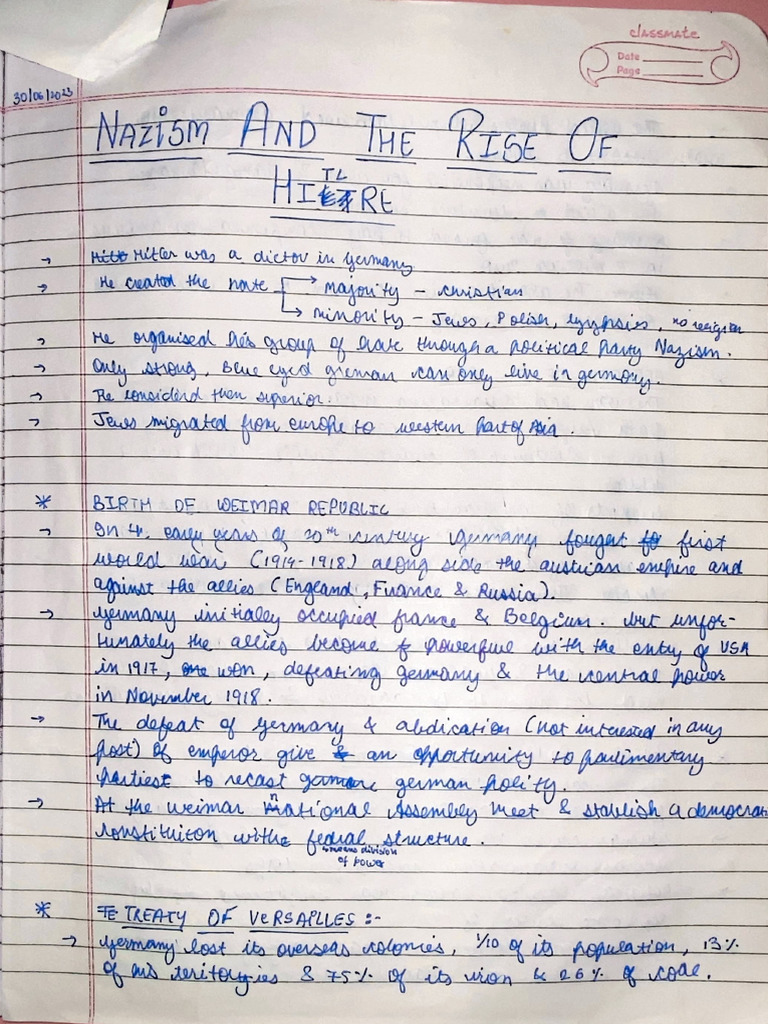 classmate
Date
Page
30/06/2023
NAZISM AND THE RISE OF
HITLRE
→ Hitler was a dictor in Germany
→ He created the hate → majority - christian
→ minority - Jews, Polish, gyphsies, no religion
→ He organised his group of hate through a political party Nazism.
→ Only strong, blue eyed german can only live in germony.
→ He considerd them superior.
→ Jews migrated from europe to western part of Asia.
* BIRTH OF WEIMAR REPUBLIC
→ In the early years of 20th century Germany fought first
world war (1914-1918) along side the austrian empire and
against the allies (England, France & Russia).
→ Germany initialey occupied france & Belgium. but unfor-
tunately the allies become powerful with the entry of USA
in 1917, won, defeating germany & the central power
in November 1918.
→ The defeat of Germany & abdication (not interested in any
post) of emperor give an opportunity to parlimentary
parties to recast german polity.
→ At the weimar national Assembly meet & stablish a democrati
constituiton withe federal structure.
means division
of power
* TREATY OF VERSAILLES :-
→ Germany lost its overseas colonies, 1/10 of its population, 13%
of its territoryies & 75% of its iron & 26% of coal.